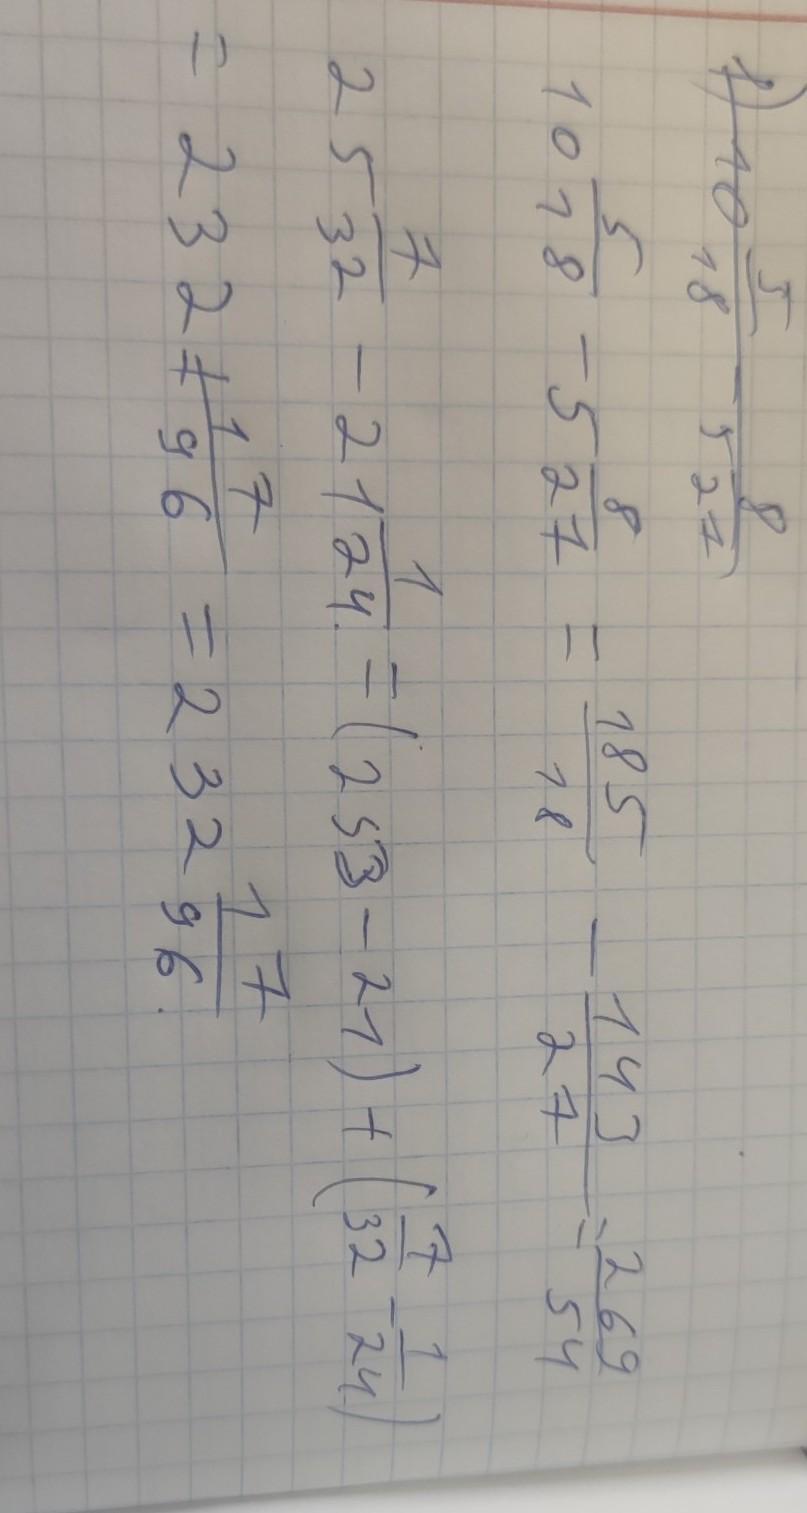 1) 10 5/18 - 5 8/27
10 5/18 - 5 8/27 = 185/18 - 143/27 = 269/54
25 7/32 - 21 1/24 = (253 - 21) + (7/32 - 1/24)
= 232 + 17/96 = 232 17/96.